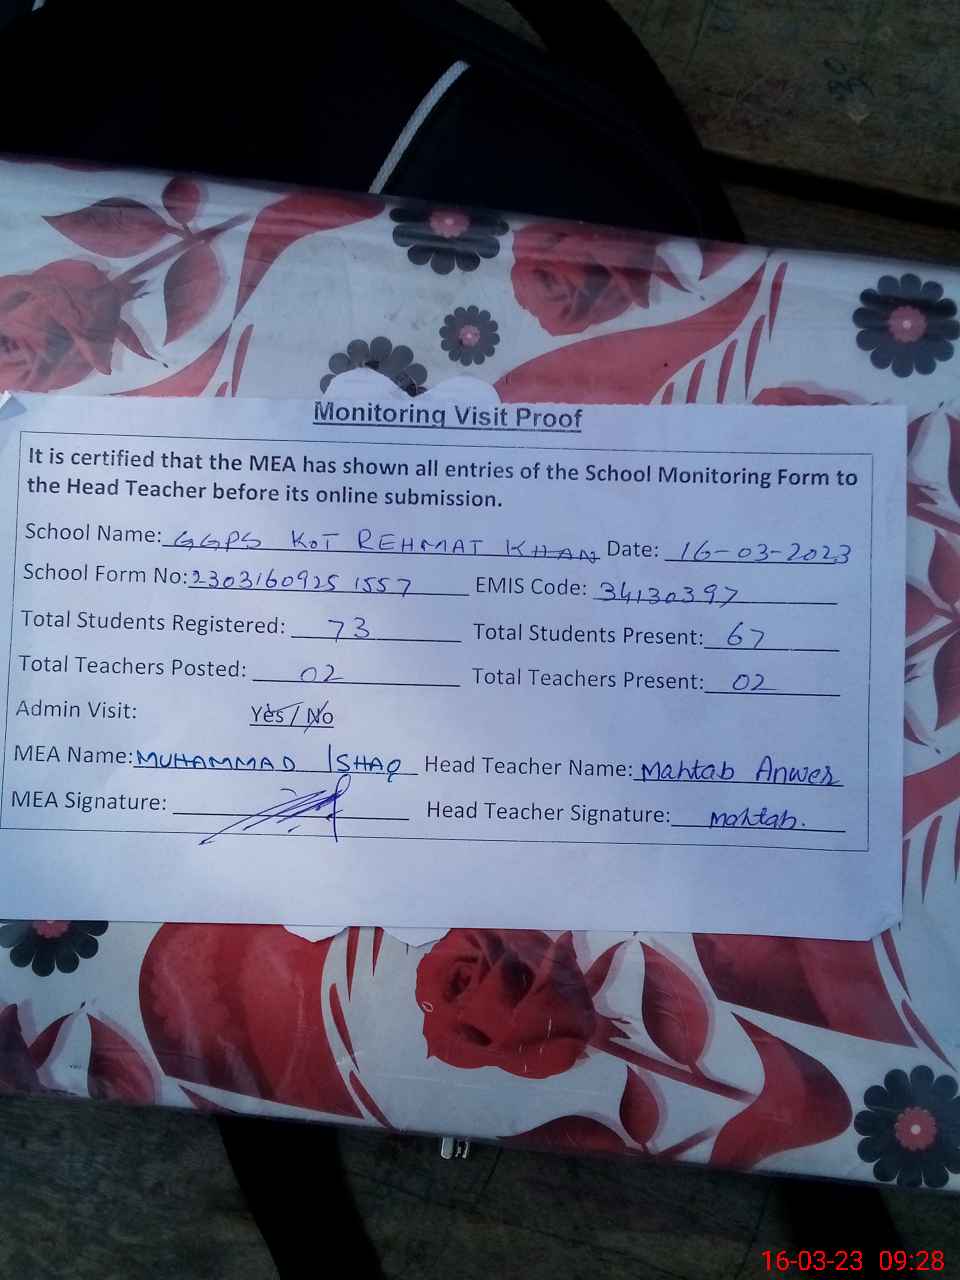 Monitoring Visit Proof
It is certified that the MEA has shown all entries of the School Monitoring Form to
the Head Teacher before its online submission.
School Name: GGPS KOT REHMAT KHAN Date: 16-03-2023
School Form No: 2303160925 1557 EMIS Code: 34130397
Total Students Registered: 73 Total Students Present: 67
Total Teachers Posted: 02 Total Teachers Present: 02
Admin Visit: Yes / No
MEA Name: MUHAMMAD ISHAQ Head Teacher Name: Mahtab Anwer
MEA Signature: Head Teacher Signature: Mahtab.
16-03-23 09:28